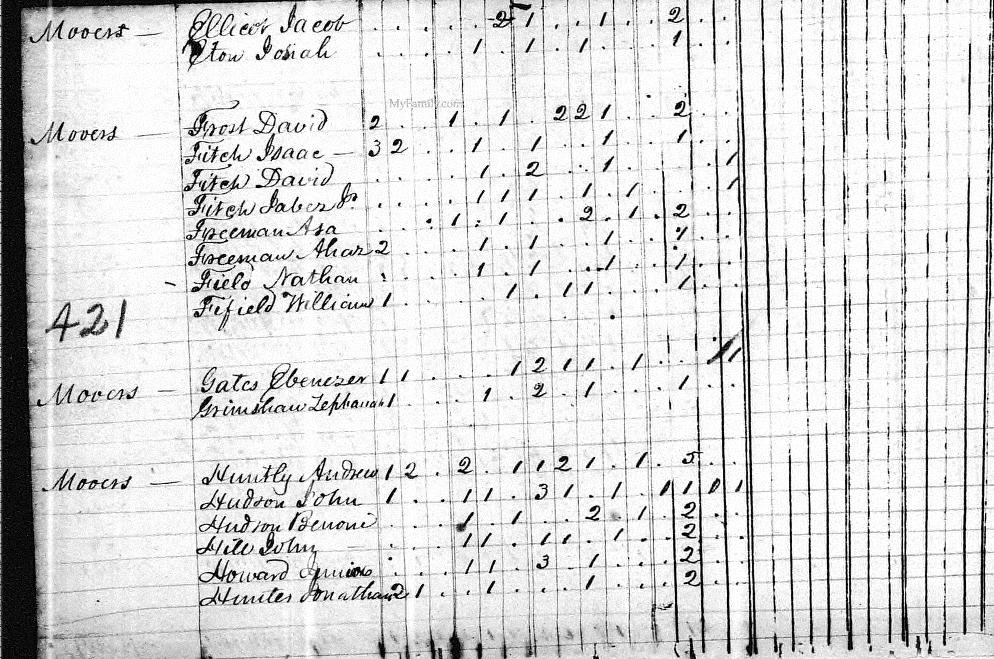 Mooers — Ellicot Jacob . . . . . 2 1 . . 1 . . 2 . .
Eton Josiah . . . . 1 . 1 . 1 . . . 1 . .
MyFamily.com
Mooers — Frost David 2 . . 1 . 1 . 2 2 1 . . 2 . .
Fitch Isaac — 3 2 . . 1 . 1 . . 1 . . 1 . .
Fitch David . . . . 1 . 2 . . 1 . . . . 1
Fitch Jabez Jr . . . . 1 1 1 . 1 . 1 . . . 1
Freeman Asa . . . 1 . 1 . . 2 . 1 . 2 . .
Freeman Ahaz 2 . . . 1 . 1 . . 1 . . 1 . .
Field Nathan . . . . 1 . 1 . . 1 . . 1 . .
Fifield William 1 . . . . 1 . 1 1 . . . 1 . .
421
Mooers — Gates Ebenezer 1 1 . . . 1 2 1 1 . 1 . . 1 1
Grimshaw Zephaniah 1 . . . 1 . 2 . 1 . . . 1 . .
Mooers — Huntly Andrew 1 2 . 2 . 1 1 2 1 . 1 . 5 . .
Hudson John 1 . . 1 1 . 3 1 . 1 . 1 1 1 1
Hudson Benoni . . . 1 . 1 . . 2 . 1 . 2 . .
Hill John . . . 1 1 . 1 1 . 1 . . 2 . .
Howard . . . 1 1 . 3 . 1 . . . 2 . .
Hunter Jonathan 2 1 . . 1 . . . 1 . . . 2 . .